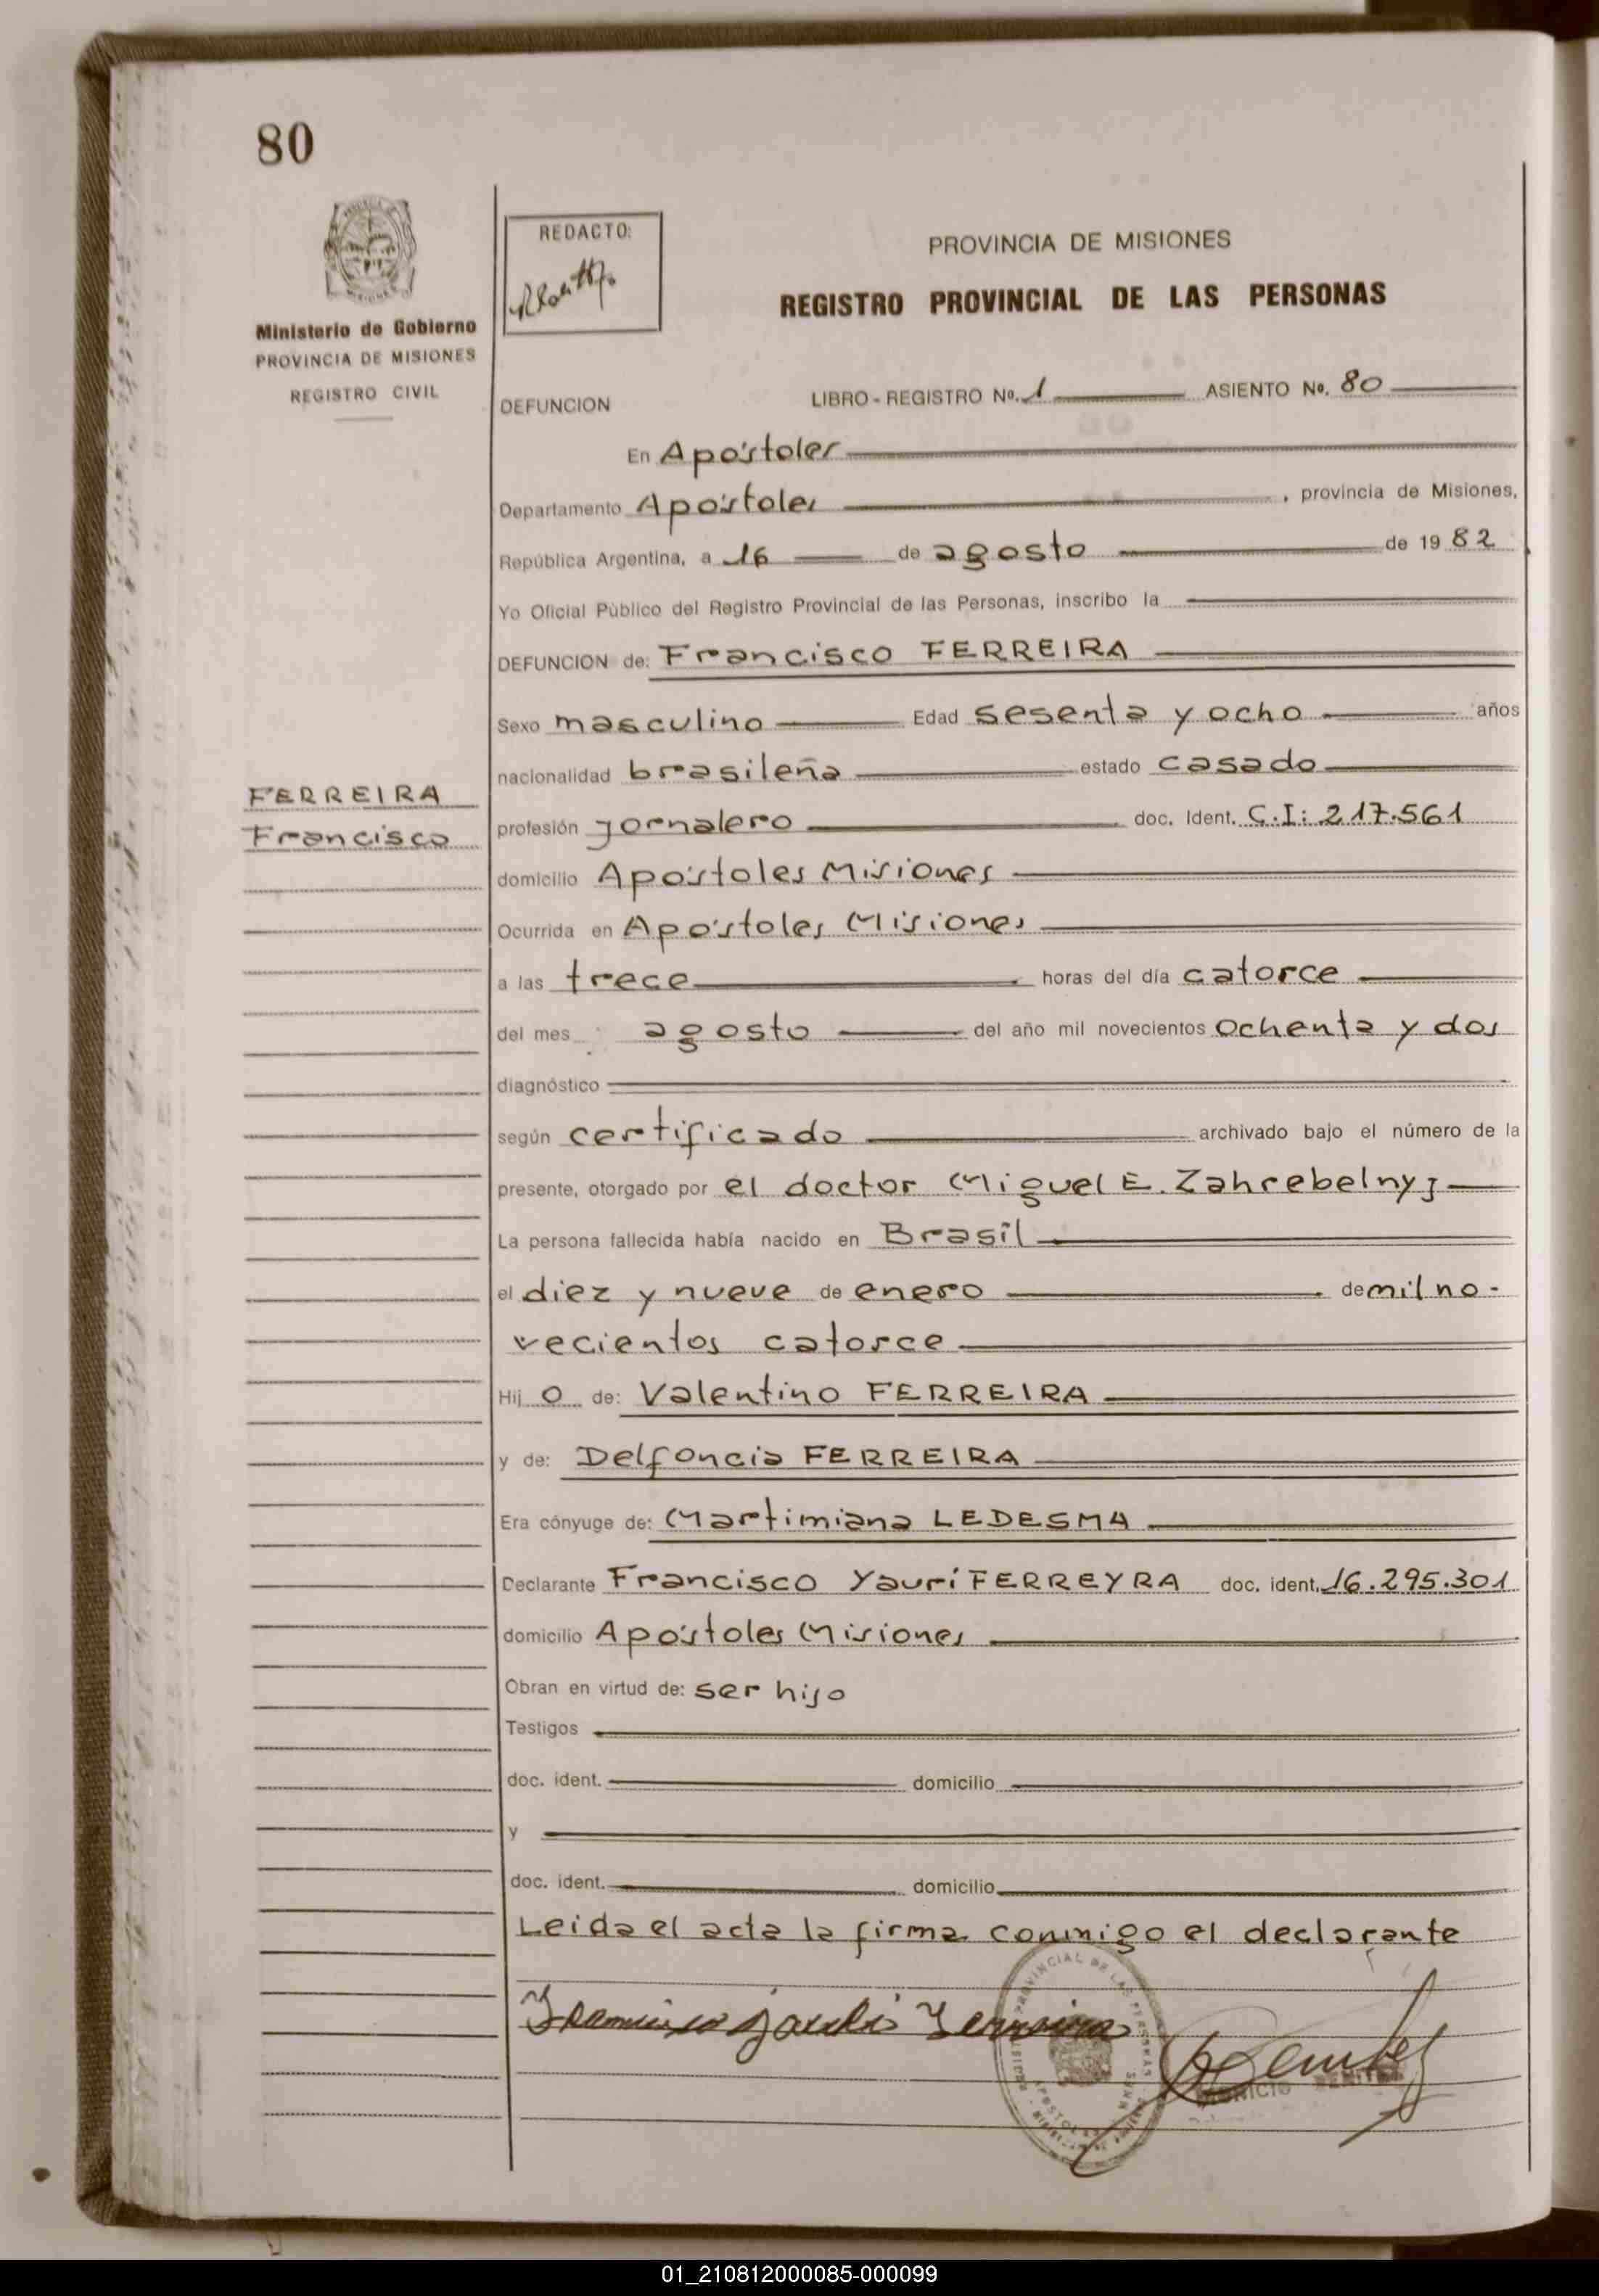 80
Ministerio de Gobierno
PROVINCIA DE MISIONES
REGISTRO CIVIL
REDACTO:
PROVINCIA DE MISIONES
REGISTRO PROVINCIAL DE LAS PERSONAS
DEFUNCION LIBRO - REGISTRO No. 1 ASIENTO No. 80
En Apóstoles
Departamento Apóstoles, provincia de Misiones,
República Argentina, a 16 de agosto de 1982
Yo Oficial Público del Registro Provincial de las Personas, inscribo la
DEFUNCION de: Francisco FERREIRA
Sexo masculino Edad sesenta y ocho años
nacionalidad brasileña estado casado
FERREIRA
Francisco
profesión jornalero doc. Ident. C.I: 217.561
domicilio Apóstoles Misiones
Ocurrida en Apóstoles Misiones
a las trece horas del día catorce
del mes agosto del año mil novecientos ochenta y dos
diagnóstico
según certificado archivado bajo el número de la
presente, otorgado por el doctor Miguel E. Zahrebelnyj
La persona fallecida había nacido en Brasil
el diez y nueve de enero de mil no-
vecientos catorce
Hijo de: Valentino FERREIRA
y de: Delfoncia FERREIRA
Era cónyuge de: Martimiana LEDESMA
Declarante Francisco Yaurí FERREYRA doc. ident. 16.295.301
domicilio Apóstoles Misiones
Obran en virtud de: ser hijo
Testigos
doc. ident. domicilio
y
doc. ident. domicilio
Leida el acta la firma conmigo el declarante
01_210812000085-000099